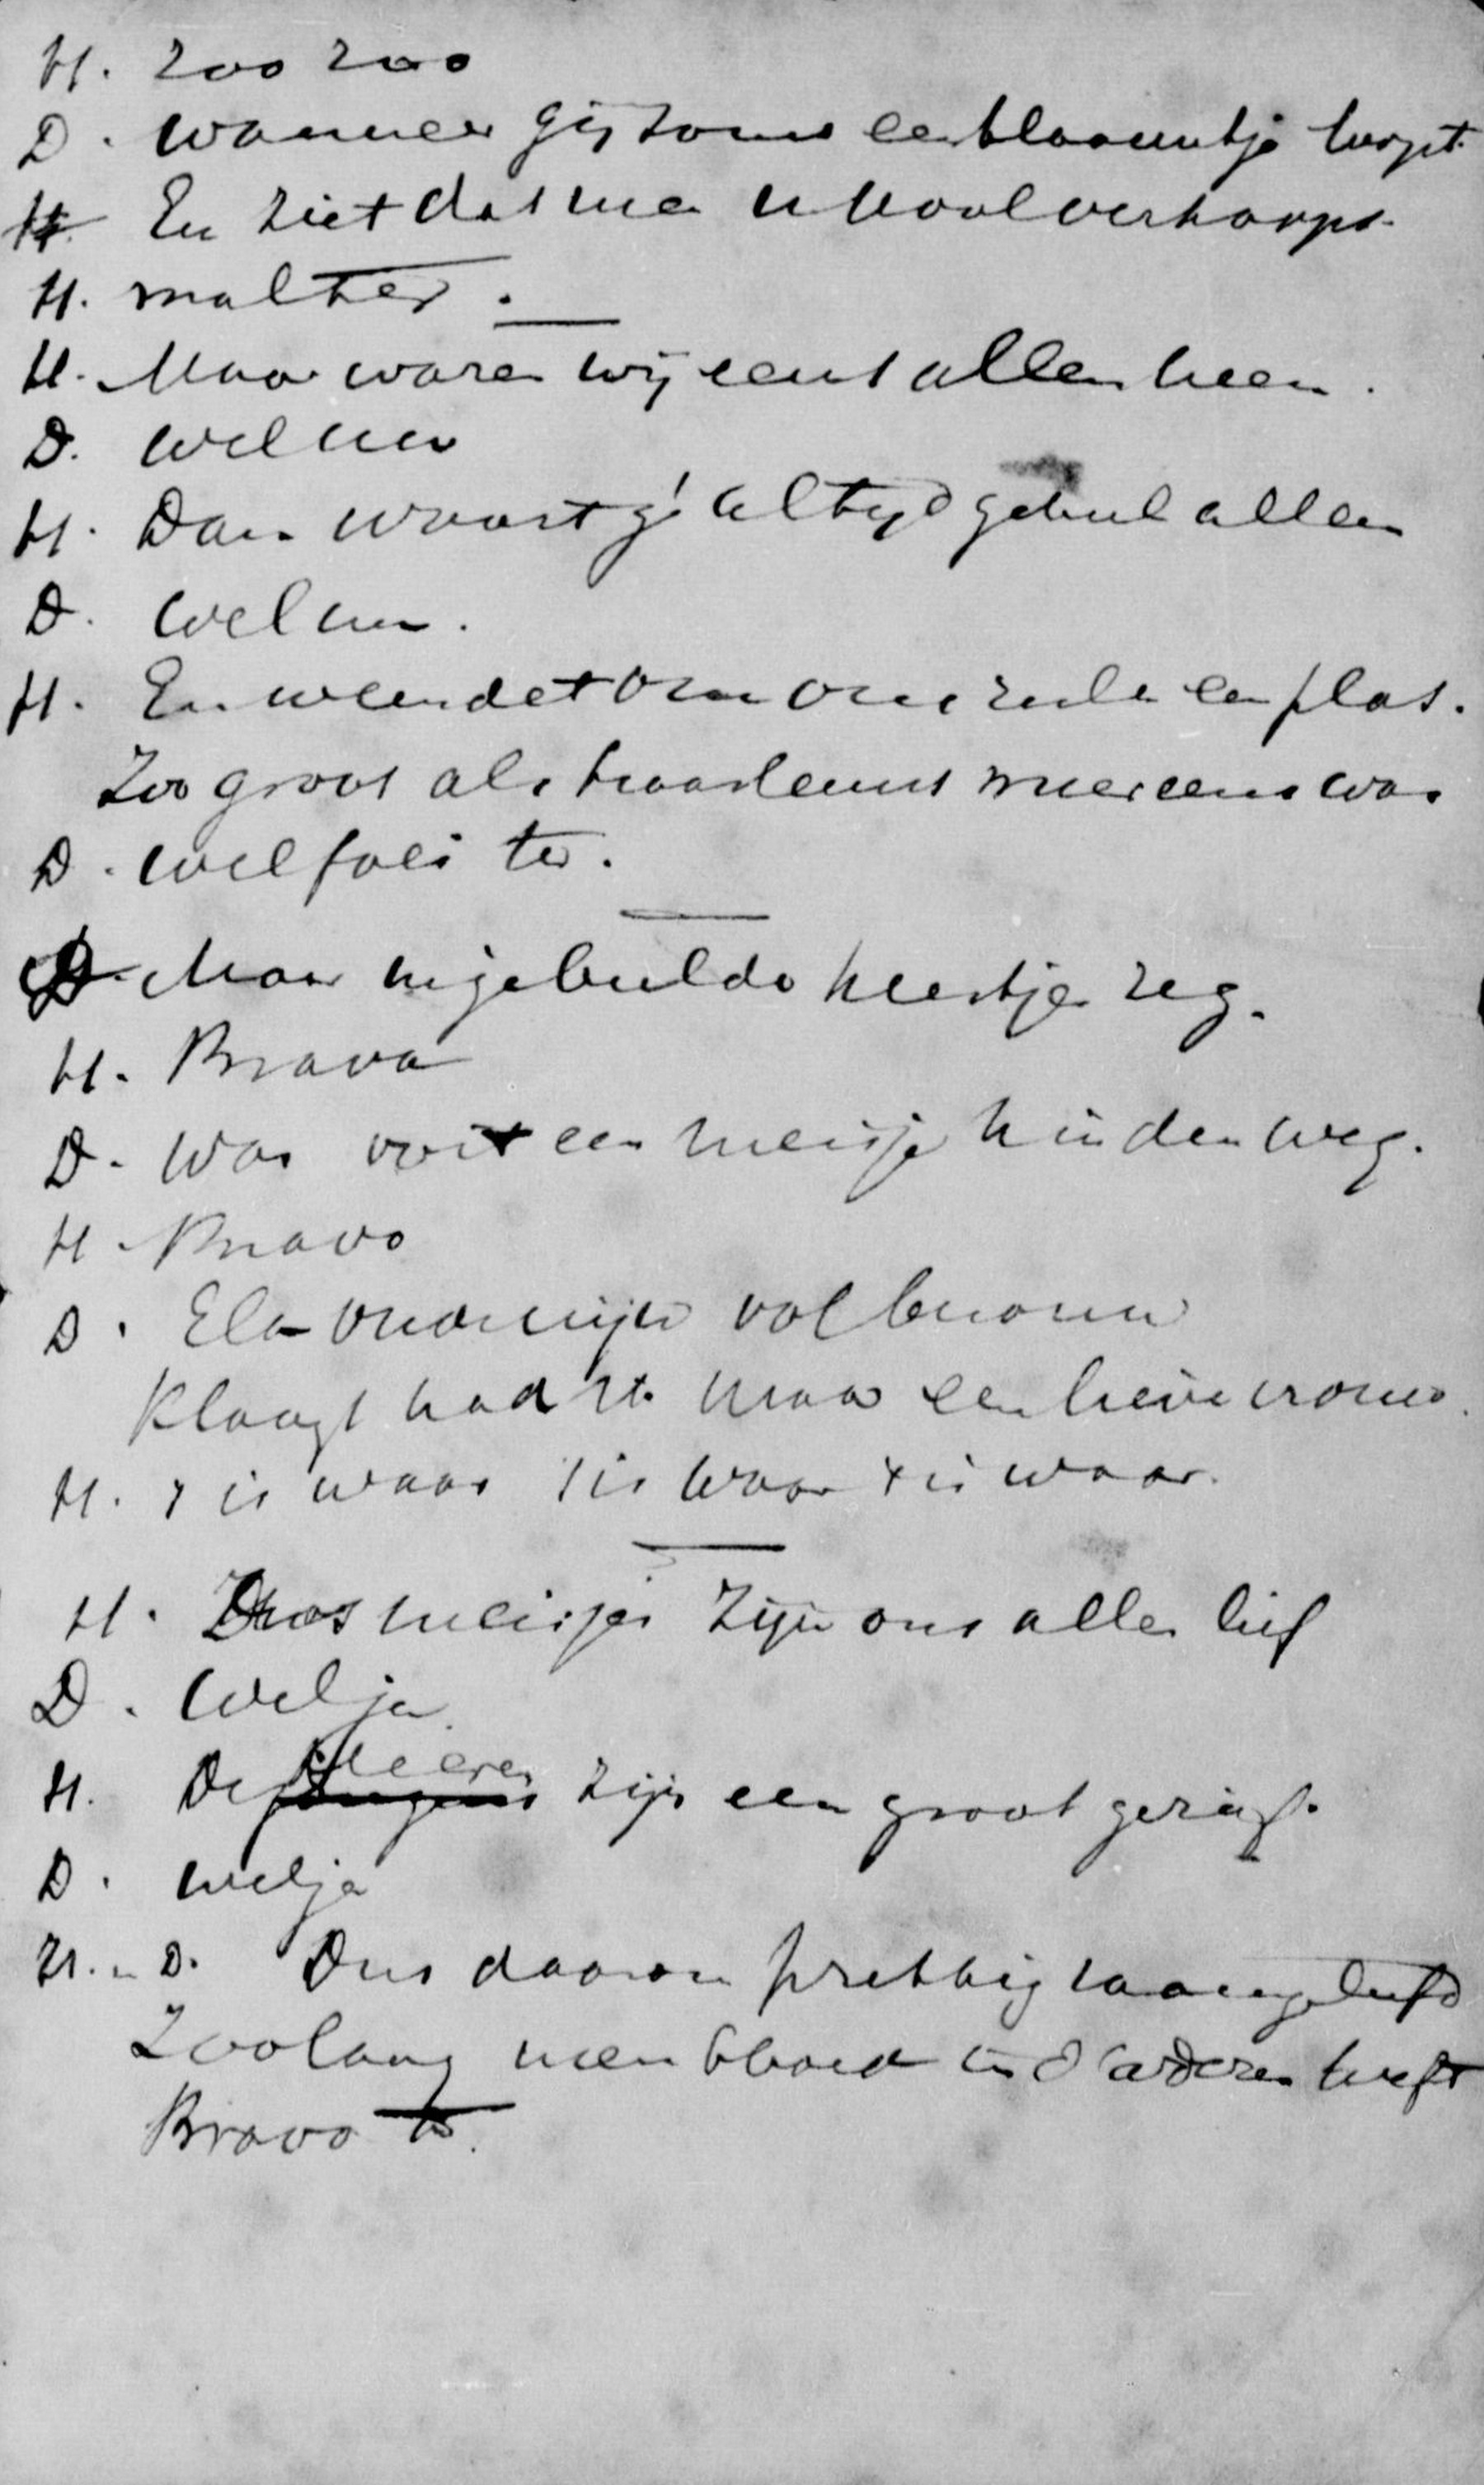 H. zoo zoo
D. wanneer gij soms een blaauwtje loopt
H En ziet dat men u kool verkoopt
H. malter.
H. Maar waren wij eens allen heen.
D. wel nu
H. Dan waart gĳ altijd geheel alleen
D. wel nu.
H. En weendet om ons zulk een plas.
Zoo groot als haarlems meer eens was
D. wel foei ter.
D. Maar ingebeelde heertjes zeg.
H. Bravo
D. Was ooit een meisje u in den weg.
H. Bravo
D. Elk vrouw
Klaagt had ik maar een lieve vrouw.
H. t is waar t is waar t is waar.
H. meisjes zijn ons allen lief
D. welja
H. De Heeren zijn een groot gerief.
D. welja
H. en D. Dus daarom prettig geleefd
Zoolang men bloed in d'aderen heeft
Bravo